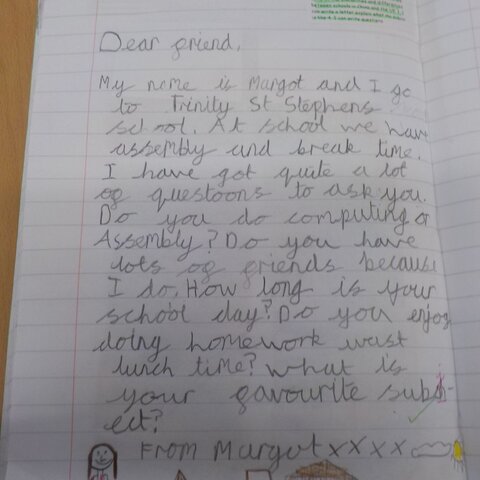 Dear friend,
My name is Margot and I go
to Trinity St Stephens
school. At school we have
assembly and break time.
I have got quite a lot
of questoons to ask you.
Do you do computing or
Assembly? Do you have
lots of friends because
I do. How long is your
school day? Do you enjoy
doing homework wast
lunch time? What is
your favourite subj-
ect?
From Margot xxxx